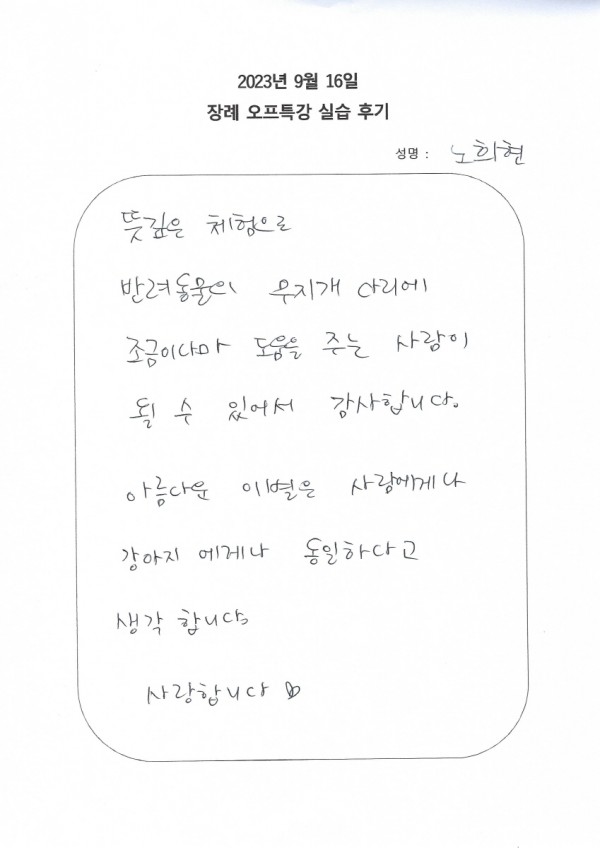 2023년 9월 16일
장례 오프특강 실습 후기
성명 : 노희현
뜻깊은 체험으로
반려동물의 무지개 다리에
조금이나마 도움을 주는 사람이
될 수 있어서 감사합니다.
아름다운 이별은 사람에게나
강아지 에게나 동일하다고
생각 합니다.
사랑합니다 ♡